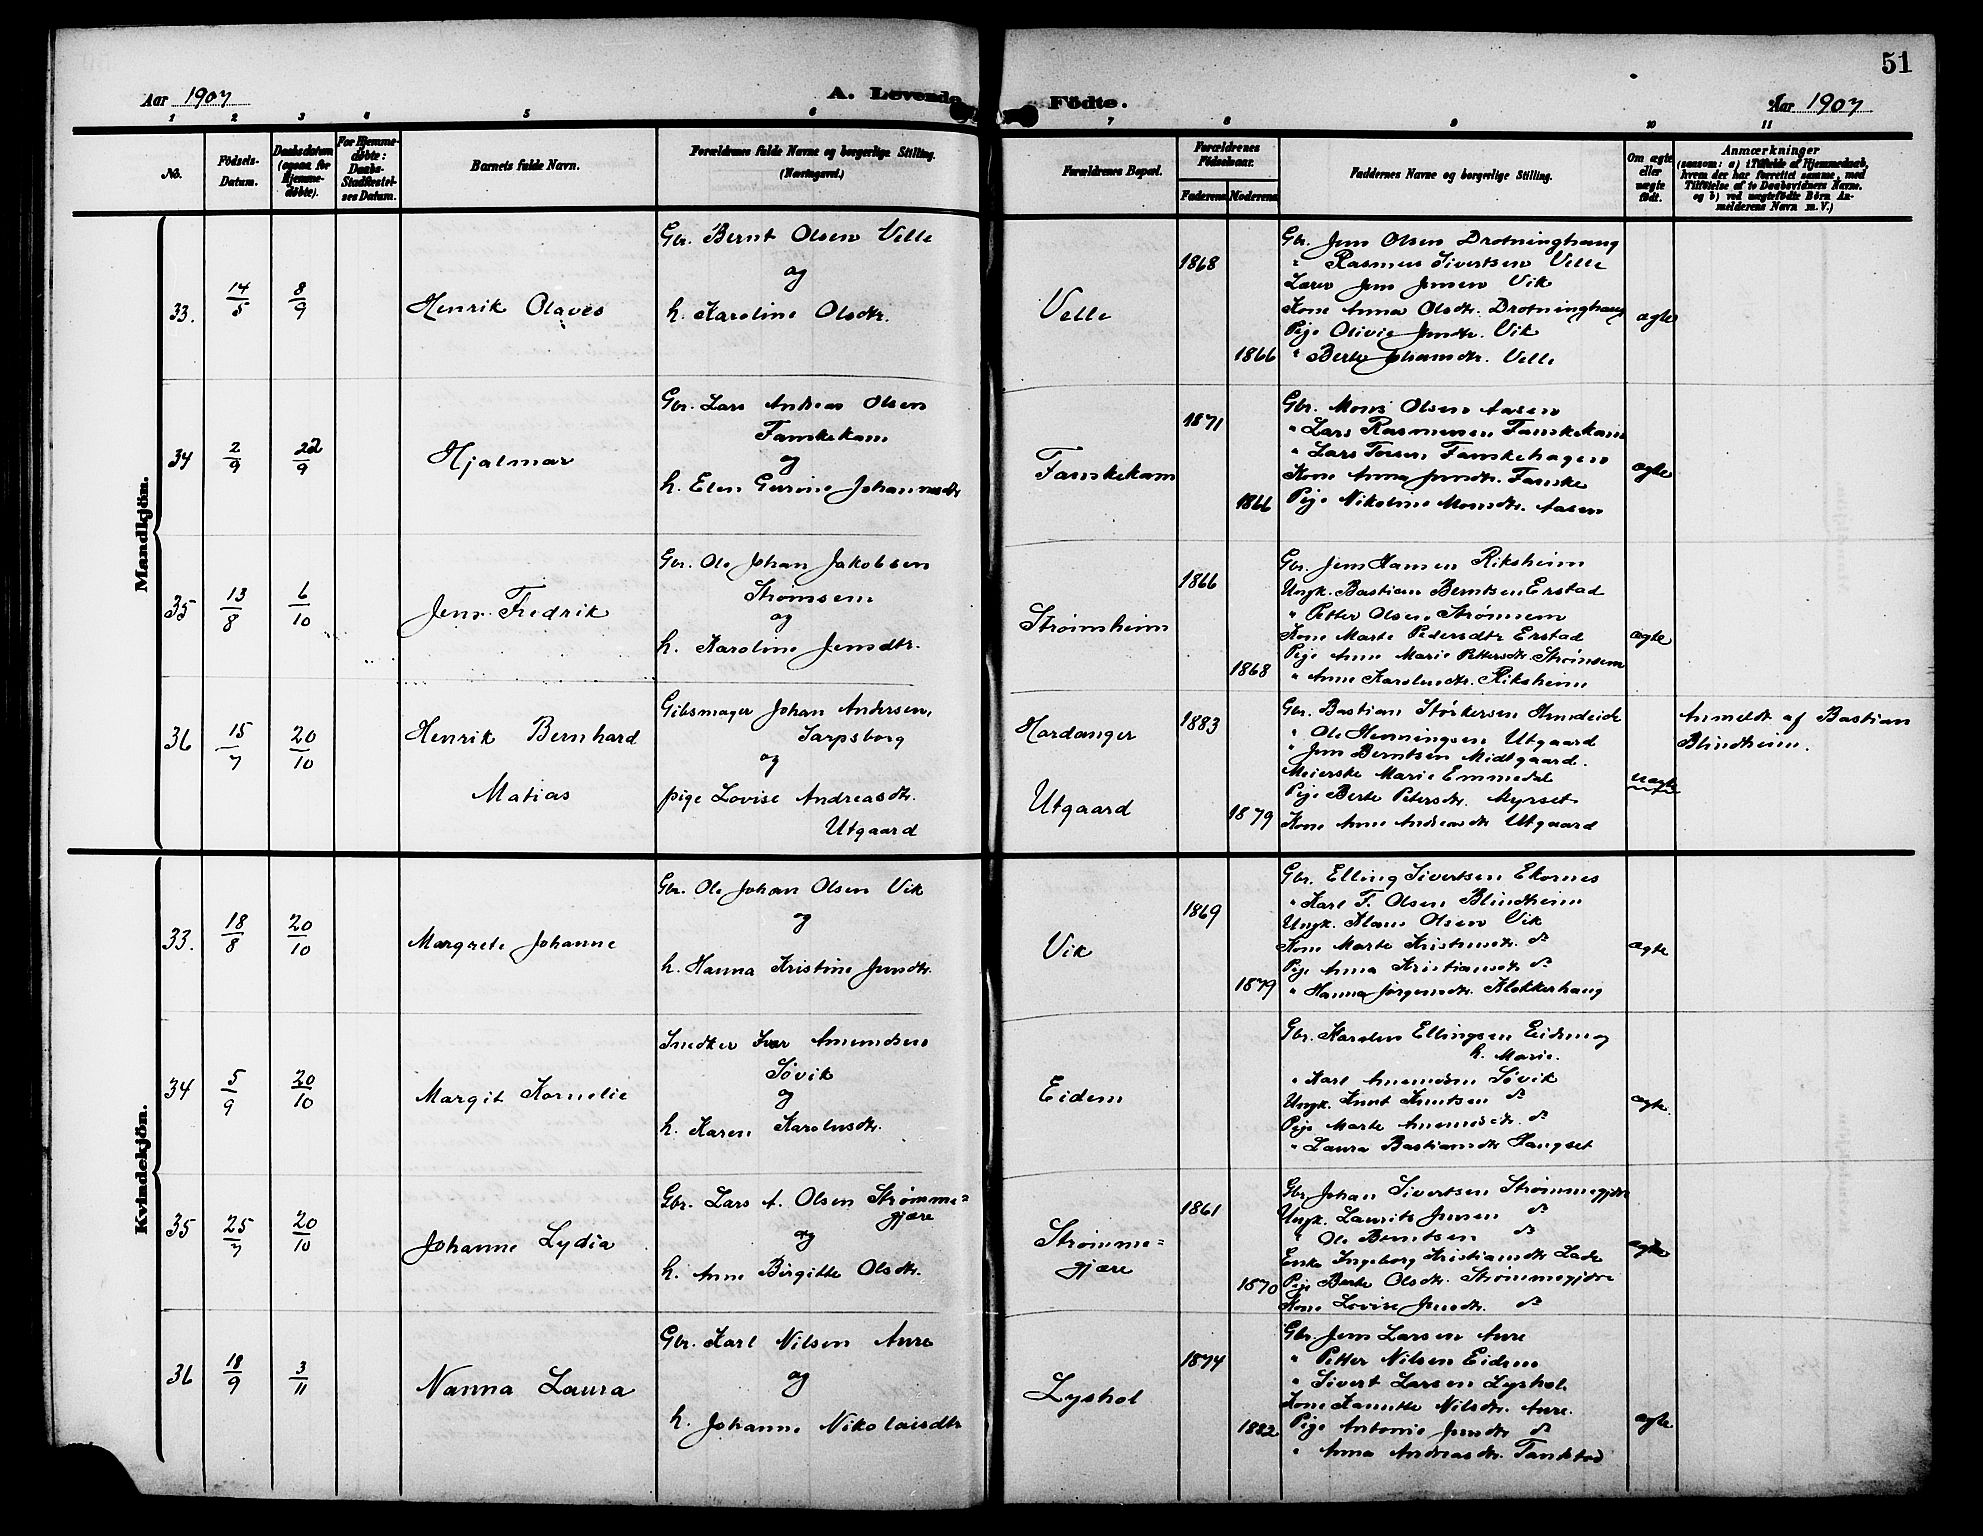 51
Aar 1907
A. Levende Fødte.
Aar 1907
1 2 3 4 5 6 7 8 9 10 11
No.
Fødsels-Datum.
Daabsdatum (ogsaa for Hjemmedøbte).
For Hjemmedøbte: Daabs-Stadfæstelses Datum.
Barnets fulde Navn.
Forældrenes fulde Navne og borgerlige Stilling. (Næringsvei.)
Forældrenes Bopæl.
Forældrenes Fødselsaar.
Faderens Moderens
Faddernes Navne og borgerlige Stilling.
Om ægte eller uægte født.
Anmærkninger
(saasom: a) i Tilfælde af Hjemmedaab, hvem der har forrettet samme, med Tilføielse af to Daabsvidners Navne. og b) ved uægtefødte Børn Anmelderens Navn m. V.)
Mandkjön.
33. 14/5 8/9 Henrik Olaves
Gbr. Bernt Olsen Velle
og
h. Karoline Olsdtr.
Velle
1868
1866
Gbr. Jens Olsen Drotninghaug
" Rasmus Sivertsen Velle
Lærer Jens Jensen Vik
Kone Anna Olsdtr. Drotninghaug
Pige Olivie Jensdtr. Vik
" Berte Johansdtr. Velle
ægte
34 2/9 22/9 Hjalmar
Gbr. Lars Andreas Olsen
Fauskekam
og
h. Elen Gurine Johannesdtr
Fauskekam
1871
1866
Gbr. Mons Olsen Aasen
" Lars Rasmussen Fauskekam
" Lars Torsen Fauskehagen
Kone Anna Jensdtr. Fauske
Pige Nikoline Monsdtr. Aasen
ægte
35 13/8 6/10 Jens Fredrik
Gbr. Ole Johan Jakobsen
Strømsem
og
h. Karoline Jensdtr.
Strømsheim
1866
1868
Gbr. Jens Hansen Riksheim
Ungk. Bastian Berntsen Erstad
" Petter Olsen Strømsem
Kone Marte Pedersdtr Erstad
Pige Anne Marie Pettersdtr. Strømsem
" Anne Karolusdtr. Riksheim
ægte
36 15/7 20/10 Henrik Bernhard
Matias
Gibsmager Johan Andersen,
Sarpsborg
og
pige Lovise Andreasdtr.
Utgaard
Hardanger
Utgaard
1883
1879
Gbr. Bastian Størkersen Amdeide
" Ole Henningsen Utgaard
" Jens Berntsen Midtgaard.
Meierske Marie Emmedal
Pige Berte Petersdtr. Myrset
Kone Anne Andreasdtr Utgaard
uægte
Anmeldt af Bastian
Blindheim.
Kvindekjön.
33. 18/8 20/10 Margrete Johanne
Gbr. Ole Johan Olsen Vik
og
h. Hanna Kristine Jensdtr.
Vik
1869
1879
Gbr. Elling Sivertsen Ekornes
" Karl T. Olsen Blindheim
Ungk. Klaus Olsen Vik
Kone Marte Kristensdtr. do
Pige Anna Kristiansdtr do
" Hanna Jørgensdtr. Klokkerhaug
ægte
34 5/9 20/10 Margit Kornelie
Snedker Iver Amundsen
Søvik
og
h. Karen Karolusdtr.
Eidem
Gbr. Karolus Ellingsen Eidem og
h. Marie.
" Karl Amundsen Søvik
Ungk. Knut Knutsen do
Pige Marte Amundsdtr. do
" Laura Bastiansdtr Haugset
ægte
35 25/7 20/10 Johanne Lydia
Gbr. Lars A. Olsen Strømme=
gjære
og
h. Anne Birgitte Olsdtr.
Strømme=
gjære
1861
1870
Gbr. Johan Sivertsen Strømmegjære
Ungk. Laurits Jensen do
" Ole Berntsen do
Enke Ingeborg Kristiansdtr Lade
Pige Berte Olsdtr. Strømmegjære
Kone Lovise Jensdtr. do
ægte
36 18/9 3/11 Nanna Laura
Gbr. Karl Nilsen Aure
og
h. Johanne Nikolaisdtr
Lyshol
1874
1882
Gbr. Jens Larsen Aure
" Petter Nilsen Eidem
" Sivert Larsen Lyshol.
Kone Hanette Nilsdtr. Aure.
Pige Antonie Jensdtr do
" Anna Andreasdtr. Tandstad
ægte